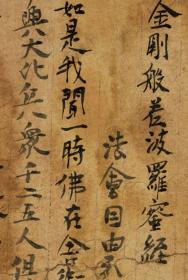 金剛般若波羅蜜經
法會因由
如是我聞一時佛在舍
與大比丘八衆千二五人俱